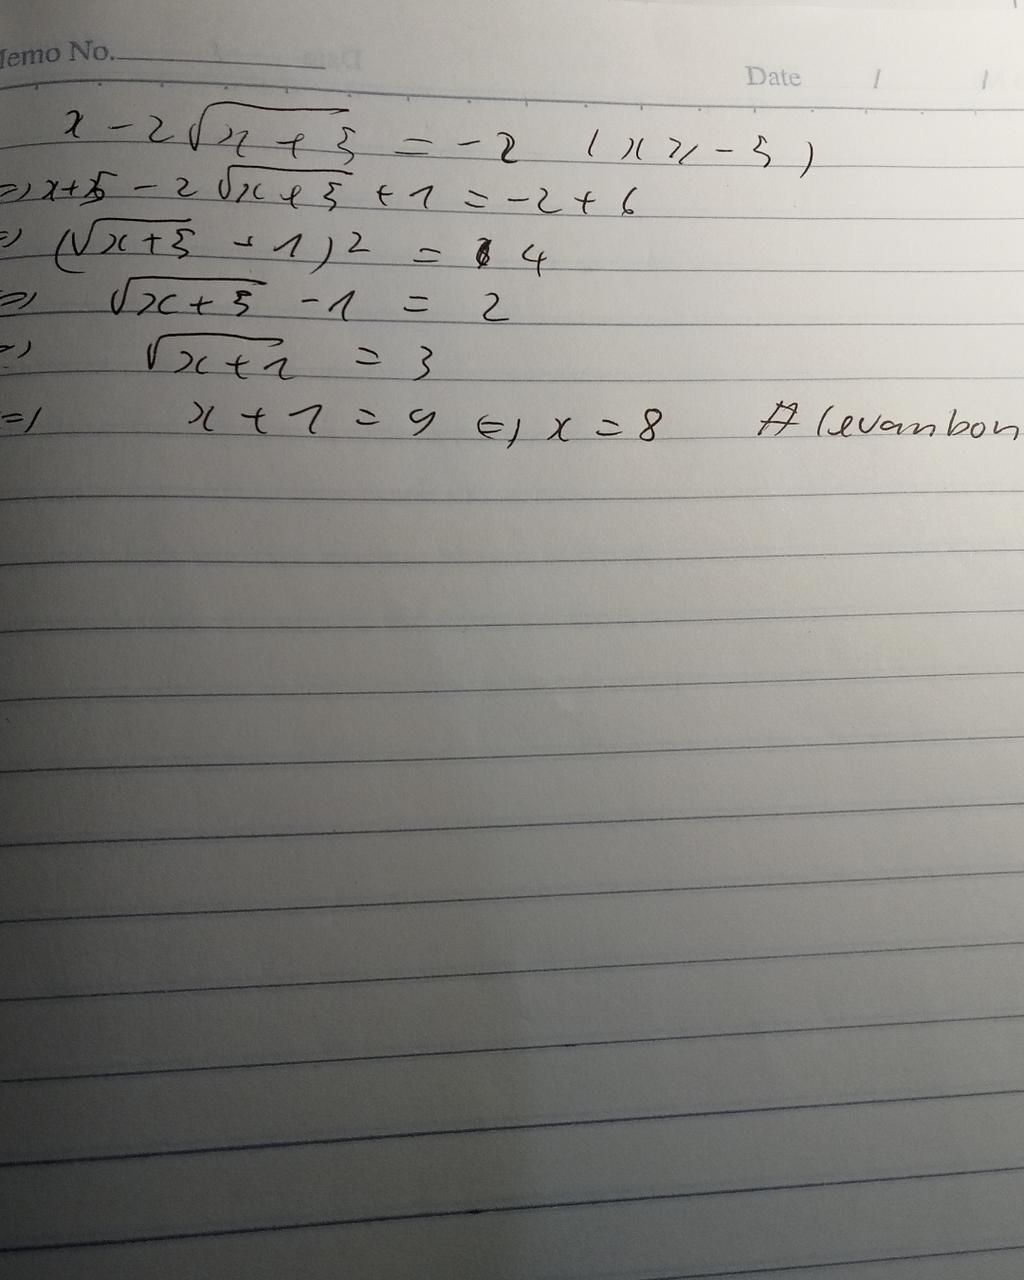 Memo No.
Date / /
x - 2√(x + 5) = -2 (x ≥ -5)
=> x+5 - 2√(x + 5) + 1 = -2 + 6
=> (√(x+5) - 1)² = 4
=> √(x+5) - 1 = 2
=> √(x+1) = 3
=> x + 1 = 9 <=> x = 8 # levanbon